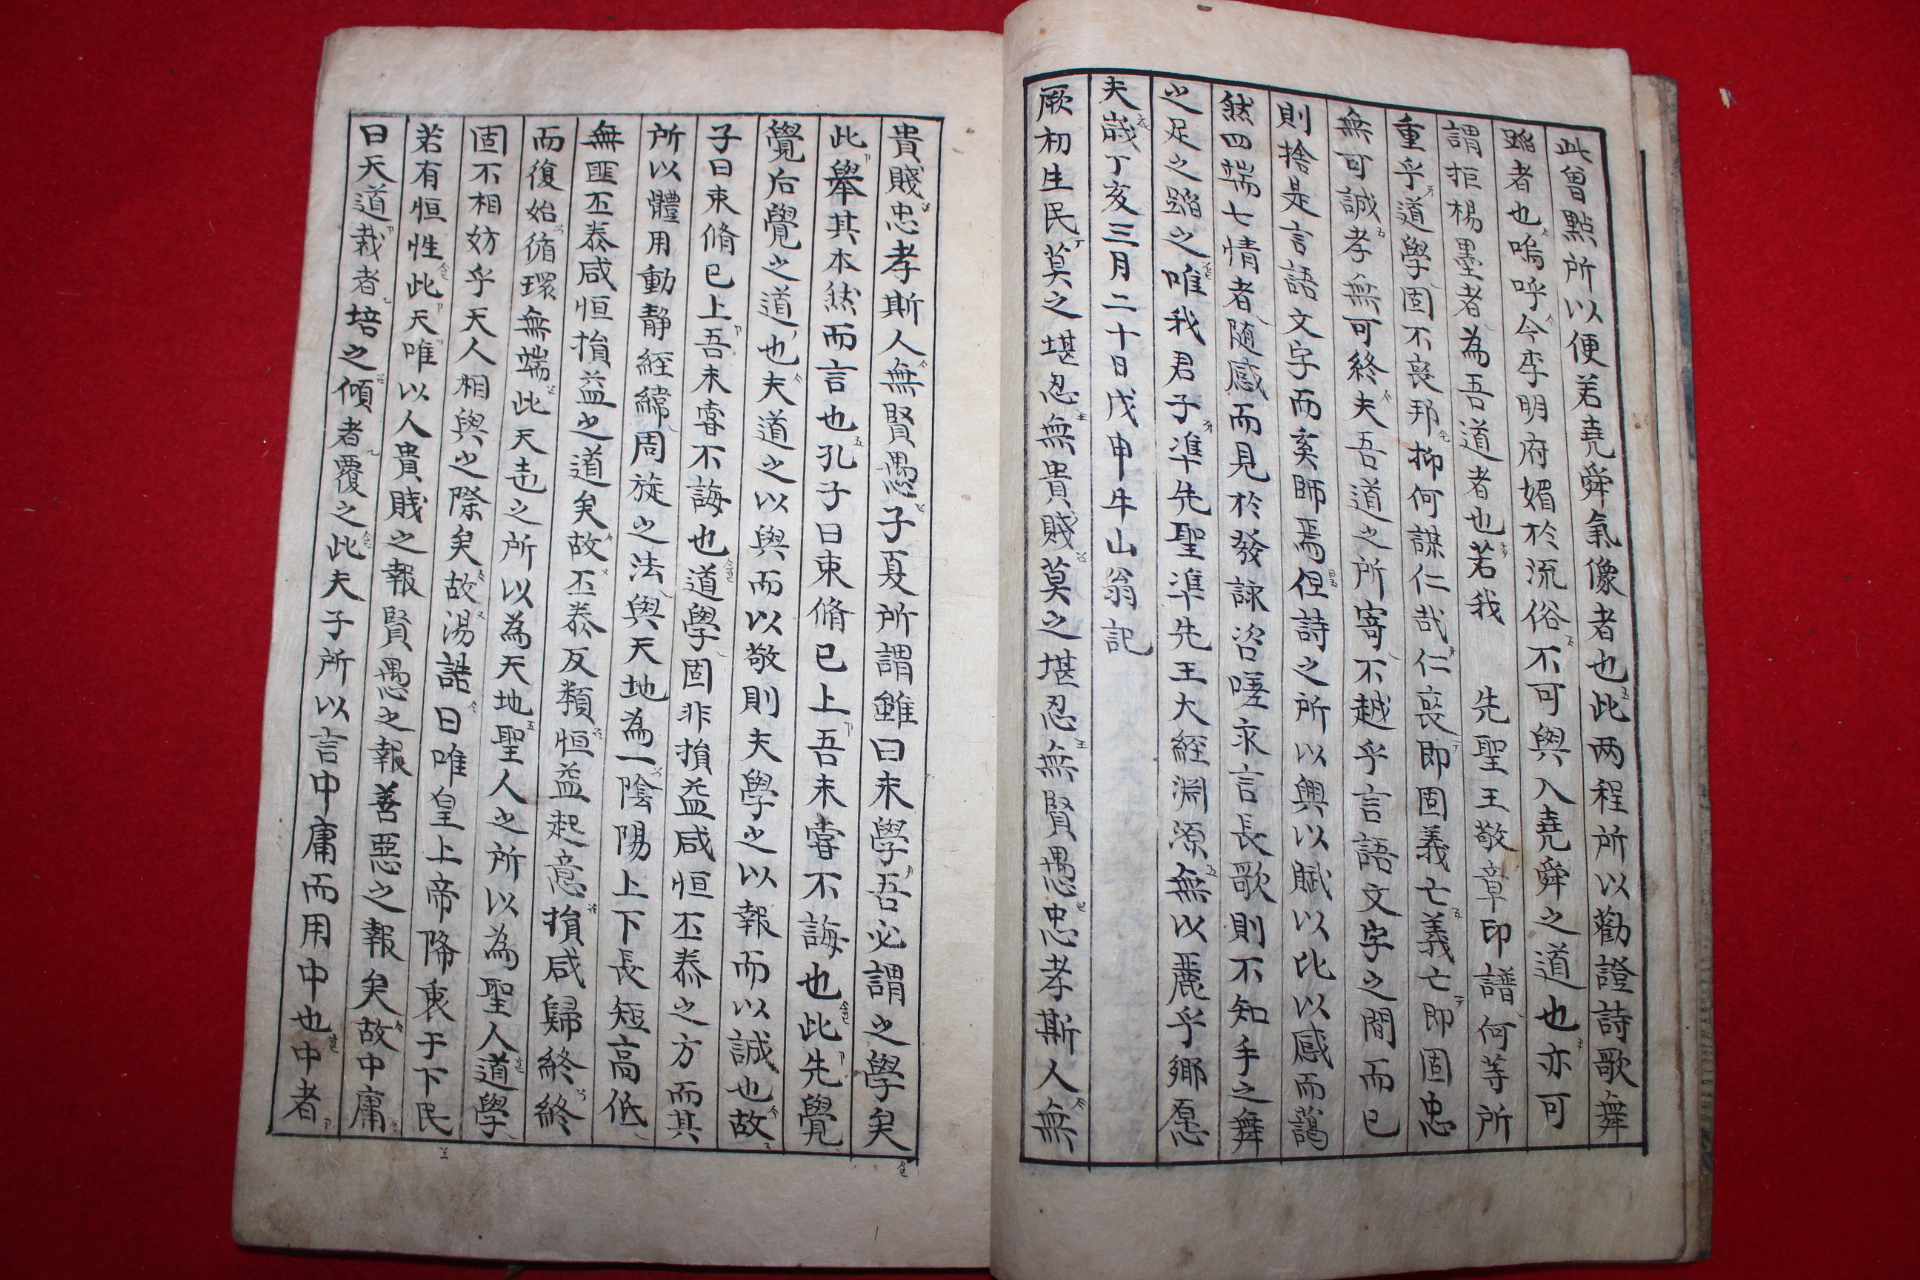 此曾點所以便若堯舜氣像者也此两程所以勸證詩歌舞
蹈者也嗚呼今李明府媚於流俗不可與入堯舜之道也亦可
謂拒楊墨者為吾道者也若我 先聖王敬章印譜何等所
重乎道學固不喪邦抑何謀仁哉仁喪即固義亡義亡即固忠
無可誠孝無可終夫吾道之所寄不越乎言語文字之間而已
則捨是言語文字而奚師焉但詩之所以興以賦以比以感而謁
然四端七情者随感而見於發詠咨嗟求言長歌則不知手之舞
之足之蹈之唯我君子準先聖準先王大經淵源無以麗乎鄉愿
夫歲丁亥三月二十日戊申牛山翁記
厥初生民莫之堪忍無貴賤莫之堪忍無賢愚忠孝斯人無
貴賤忠孝斯人無賢愚子夏所謂雖曰未學吾必謂之學矣
此舉其本然而言也孔子曰束脩已上吾未嘗不誨也此先覺
覺后覺之道也夫道之以與而以敬則夫學之以報而以誠也故
子曰束脩已上吾未嘗不誨也道學固非損益咸恒丕泰之方而其
所以體用動靜経緯周旋之法與天地為一陰陽上下長短高低
無匪丕泰咸恒損益之道矣故丕泰反類恒益起意損咸歸終終
而復始循環無端此天走之所以為天地聖人之所以為聖人道學
固不相妨乎天人相與之際矣故湯誥曰唯皇上帝降衷于下民
若有恒性此天唯以人貴賤之報賢愚之報善惡之報矣故中庸
曰天道栽者培之傾者覆之此夫子所以言中庸而用中也中者